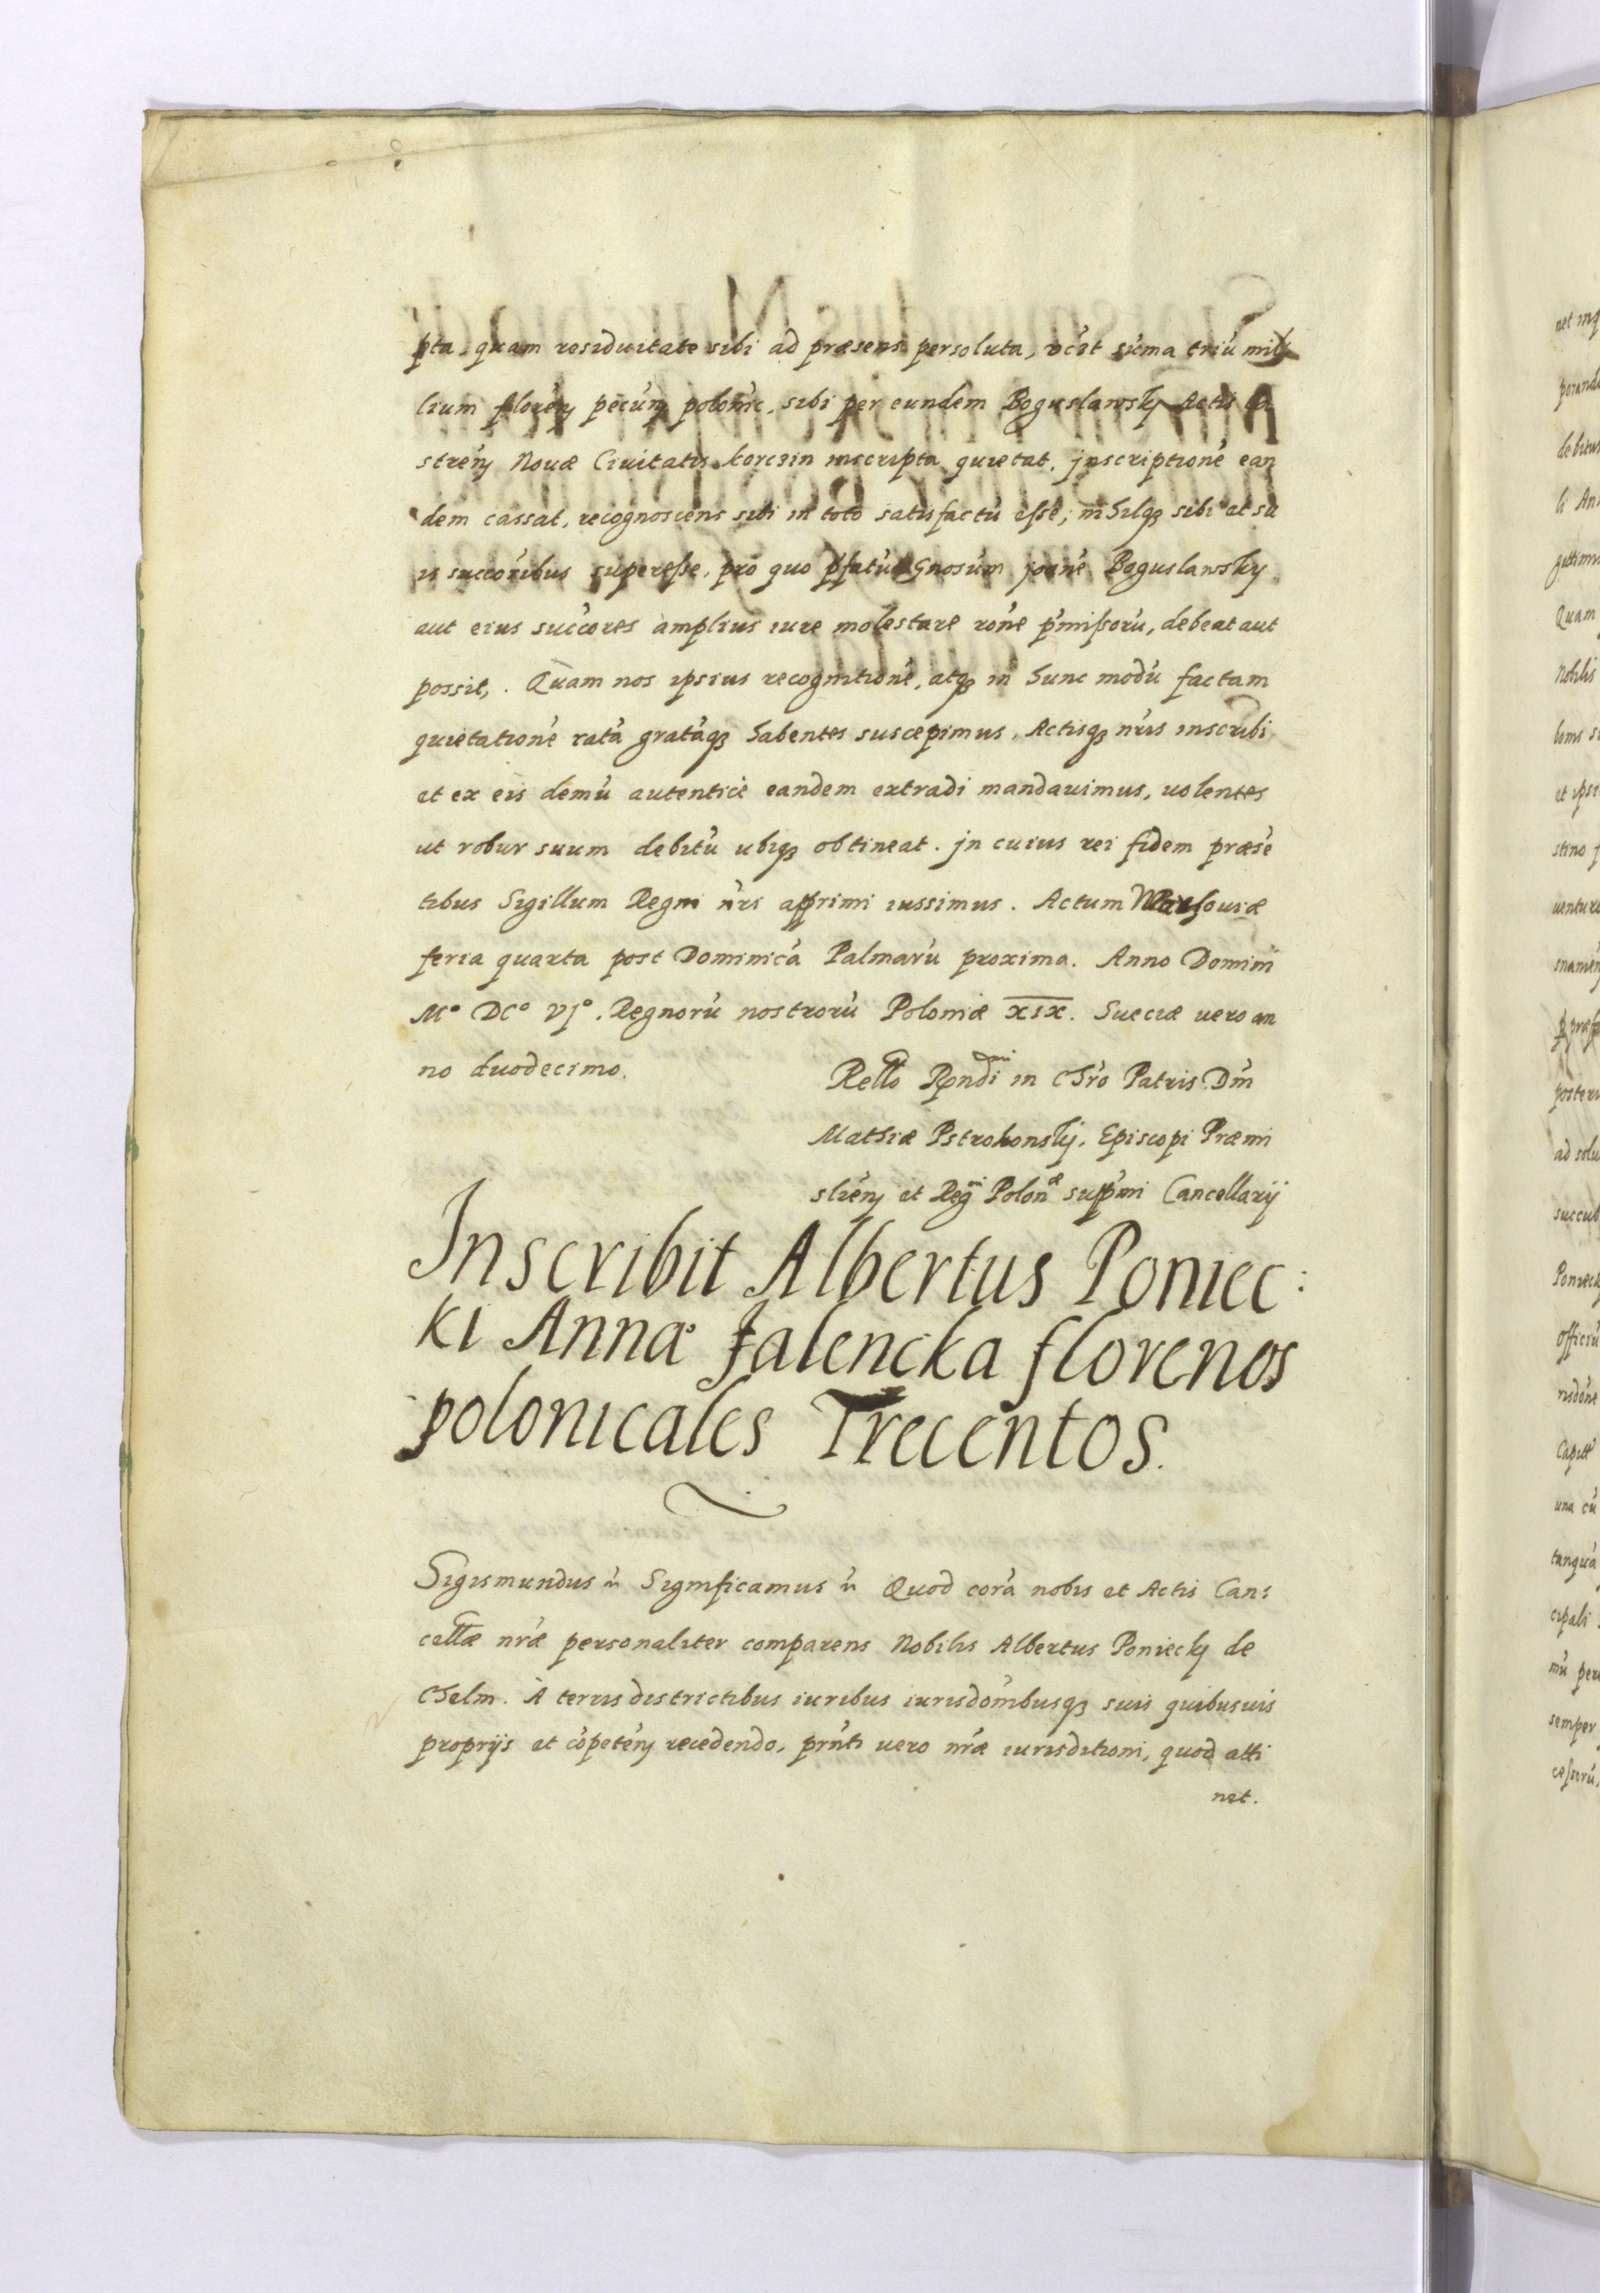 pta, quam residuitate sibi ad præsens persoluta, vcȝt suma triū mil
lium floreṅ pecuṅ polonic, sibi per eundem Boguslawsky Actis Ca
streṅ Novæ Civitatis korczin inscripta quietat, jnscriptionē ean
dem cassat, recognoscens sibi in toto satisfactū esse, nihilqȝ sibi et su
is succoribus superesse, pro quo pfatū Gnosum joanē Boguslawsky
aut eius succores amplius iure molestare rone pmissorū, debeat aut
possit,. Quam nos ipsius recognitionē, atqȝ in hunc modū factam
quietationē ratā gratāqȝ habentes suscepimus, Actisqȝ nris inscribi
et ex eis demū autenticė eandem extradi mandavimus, volentes
ut robur suum debitū ubiqȝ obtineat. jn cuius rei fidem præsē
tibus Sigillum Regni nri apprimi iussimus. Actum Warsoviæ
feria quarta post Dominicā Palmarū proxima. Anno Domini
M° DC° VI°. Regnorū nostrorū Poloniæ XIX. Sueciæ vero an
no duodecimo.
Rello Rondi in Chro Patris Dni
Mathiæ Pstrokonskỹ, Episcopi Præmi
slieṅ et Regii Polonæ suppmi Cancellarij
Inscribit Albertus Poniec:
ki Anna Jalencka florenos
polonicales Trecentos.
Sigismundus ṅ Significamus ṅ Quod corā nobis et Actis Can:
cellæ nræ personaliter comparens Nobilis Albertus Poniecky de
Chelm. A terris districtibus iuribus iurisdonibusqȝ suis quibusvis
proprijs et cōpeteṅ recedendo, prnti vero nræ iurisditioni, quod atti
net.